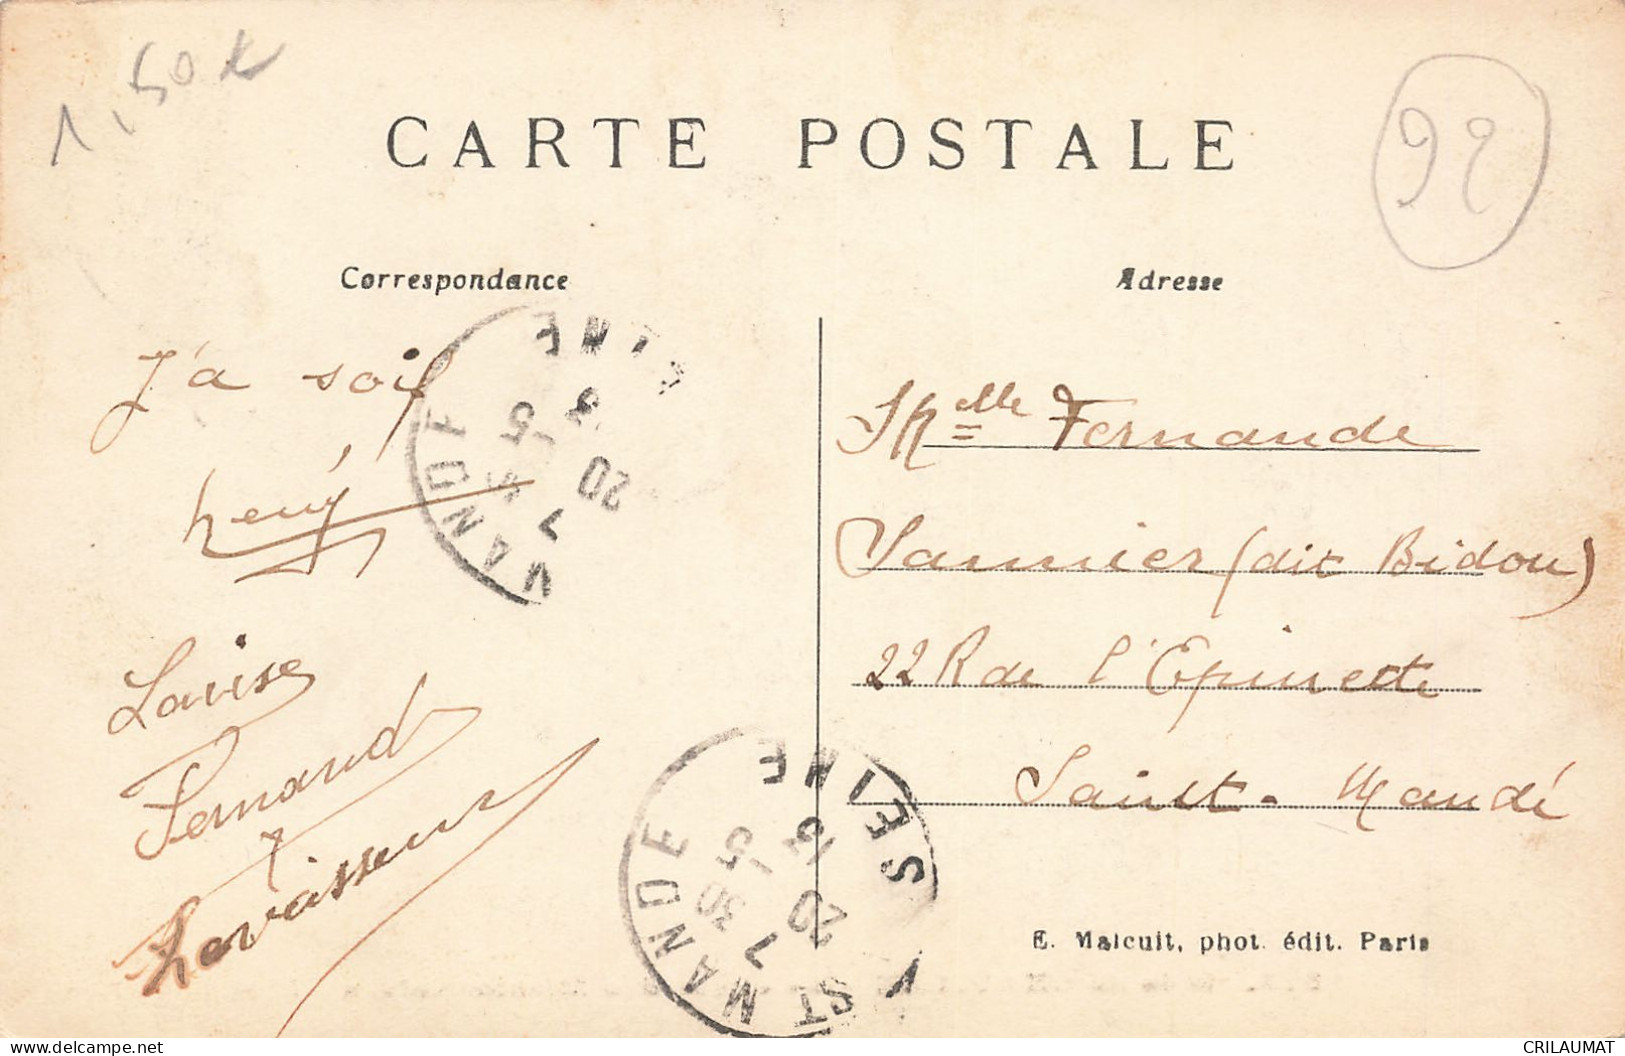 1,50€
92
CARTE POSTALE
Correspondance
Adresse
J'a soif
Louise
Fernand
Levasseur
Mlle Fernande
Saunier (dit Bidou)
22 R de l'Epinette
Saint-Mandé
VANDE
INE
7 45
20 5
ST MANDE
SEINE
7 30
20 5
E. Malcuit, phot. édit. Paris
CRILAUMAT